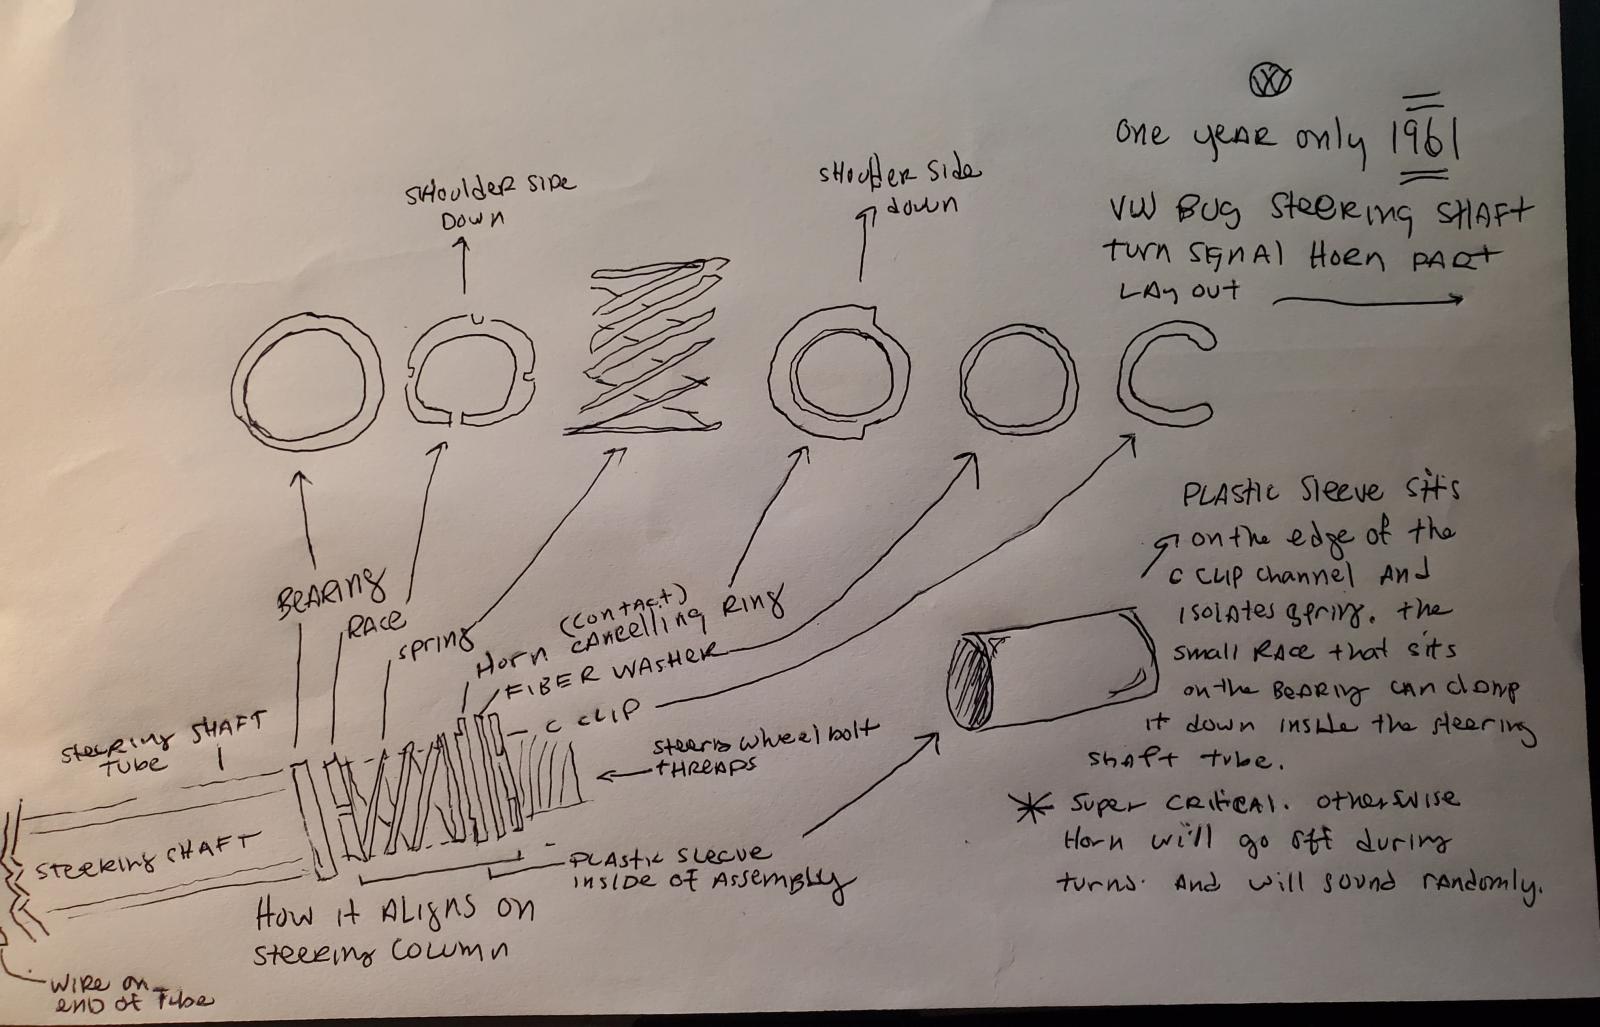 VW
One year only 1961
VW BUG Steering SHAFT
turn signal Horn part
LAy out
SHoulder Side
Down
SHoulder Side
down
BEARING
RACE
spring
Horn (contact) cancelling Ring
FIBER WASHER
C CLIP
steering wheel bolt
tHREADS
Steering SHAFT
tube
Steering SHAFT
PLAStic Sleeve
inside of Assembly
How it Aligns on
Steering Column
Wire on
end of Tube
PLAStic Sleeve Sits
on the edge of the
C CLIP channel And
isolates spring. the
small Race that sits
on the Bearing can clamp
it down inside the steering
shaft tube.
* Super critical. otherwise
Horn will go off during
turns. And will sound randomly.